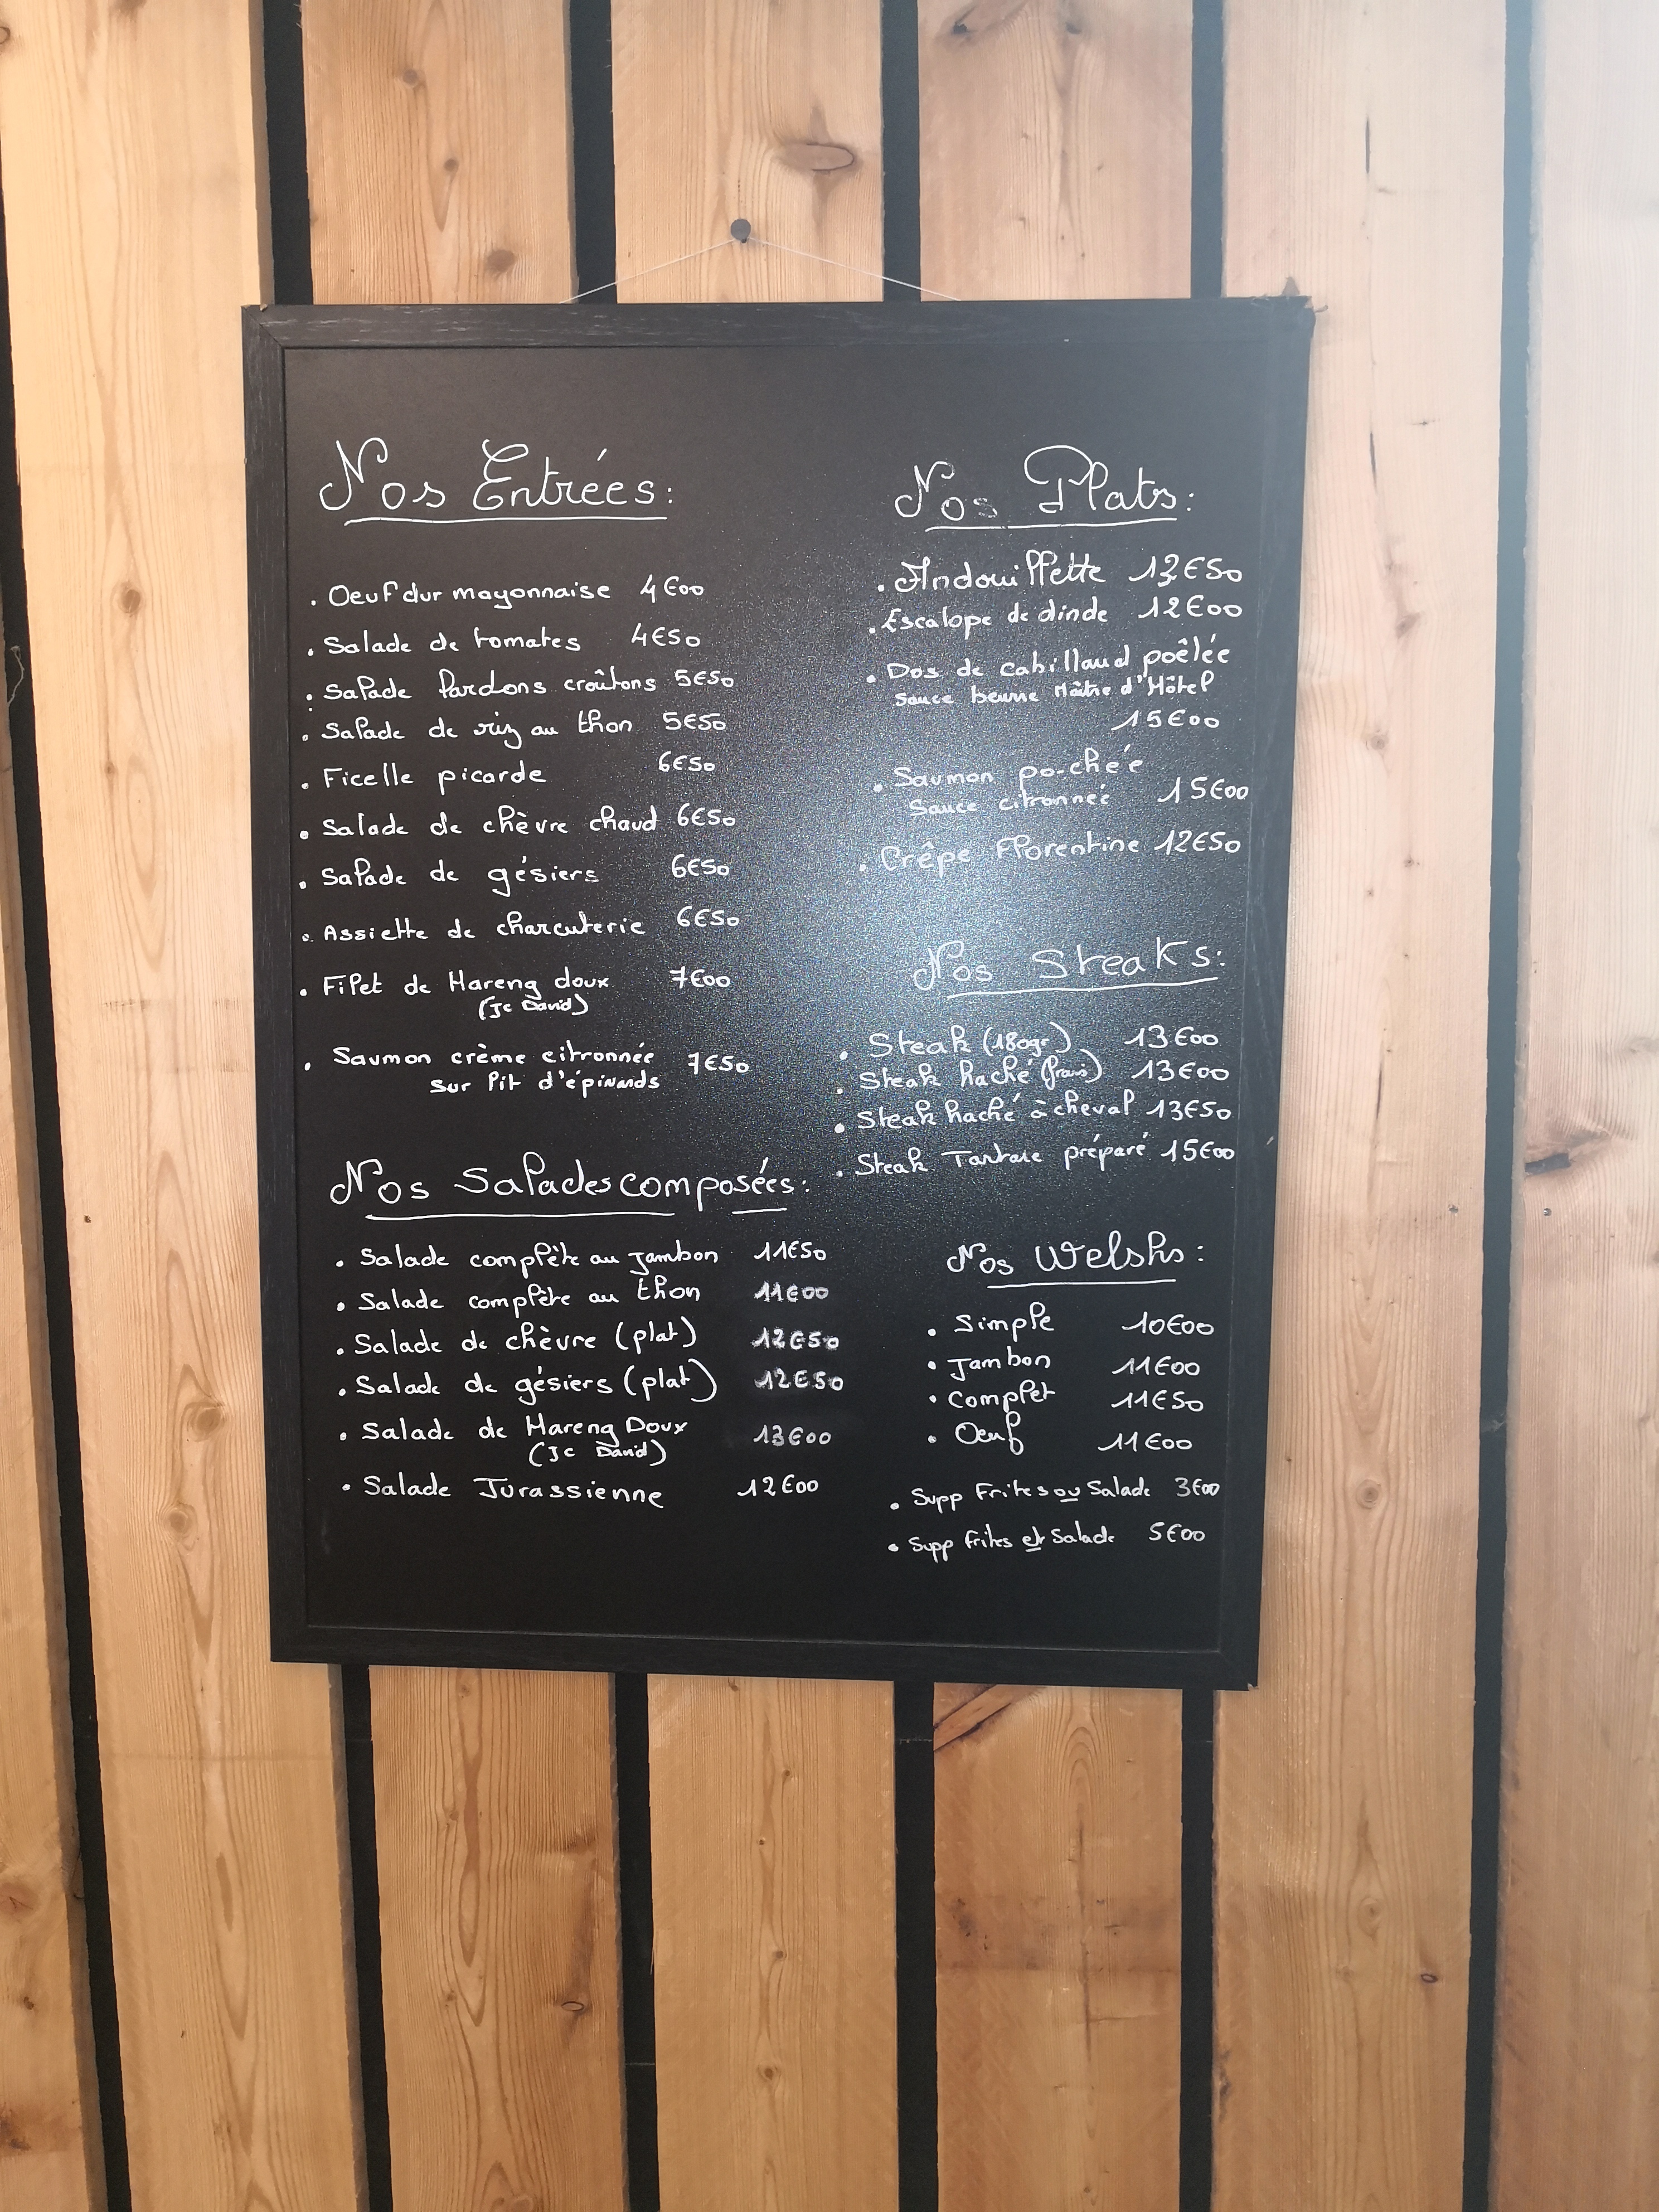 Nos Entrées:
. Oeuf dur mayonnaise 4€00
. Salade de tomates 4€50
. Salade lardons croûtons 5€50
. Salade de riz au thon 5€50
. Ficelle picarde 6€50
. Salade de chèvre chaud 6€50
. Salade de gésiers 6€50
. Assiette de charcuterie 6€50
. Filet de Hareng doux 7€00
(Jc David)
. Saumon crème citronnée 7€50
sur lit d'épinards
Nos Salades composées:
. Salade complète au jambon 11€50
. Salade complète au thon 11€00
. Salade de chèvre (plat) 12€50
. Salade de gésiers (plat) 12€50
. Salade de Hareng Doux 13€00
(Jc David)
. Salade Jurassienne 12€00
Nos Plats:
. Andouillette 13€50
. Escalope de dinde 12€00
. Dos de cabillaud poêlée
sauce beurre Maître d'Hôtel
15€00
. Saumon pochée
Sauce citronnée 15€00
. Crêpe Florentine 12€50
Nos Steaks:
. Steak (180gr) 13€00
. Steak haché (frais) 13€00
. Steak haché à cheval 13€50
. Steak Tartare préparé 15€00
Nos Welshs:
. Simple 10€00
. Jambon 11€00
. Complet 11€50
. Oeuf 11€00
. Supp Frites ou Salade 3€00
. Supp frites et Salade 5€00